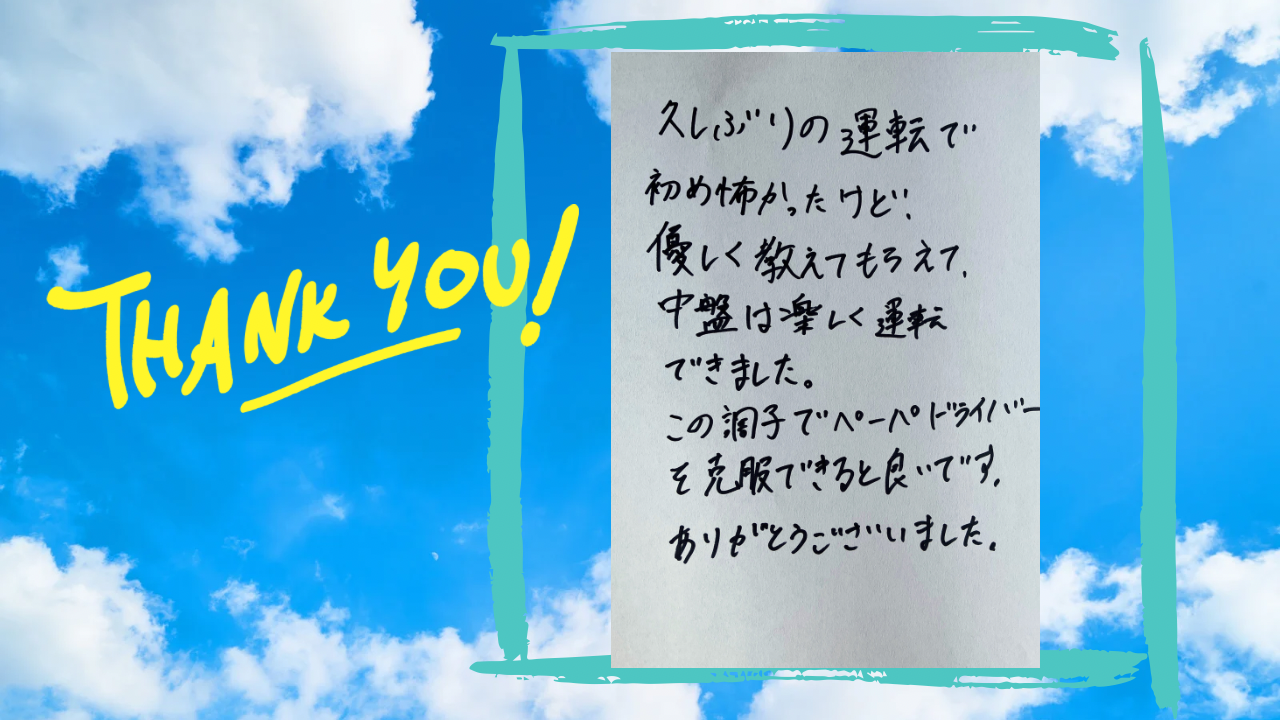 THANK YOU!
久しぶりの運転で
初め怖かったけど、
優しく教えてもらえて、
中盤は楽しく運転
できました。
この調子でペーパドライバー
を克服できると良いです。
ありがとうございました。